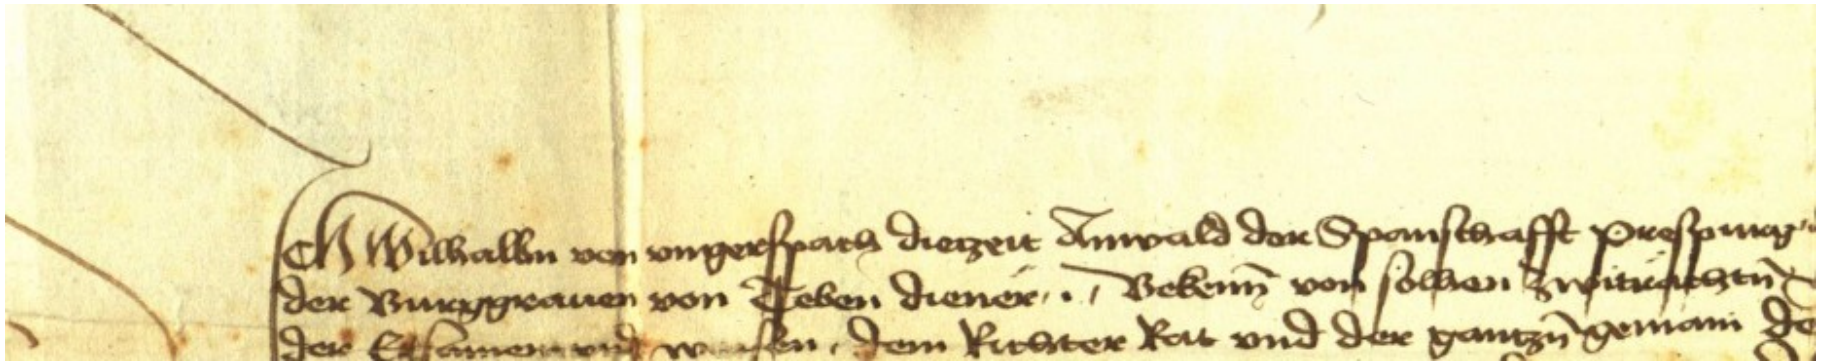 Ich Wilhallm von vngerspach dietzeit Anwald der Spanschafft Prespurg
der Burggrauen von Teben diener ./. Bekenn̄ von solhen zwitrēchtn̄
der Ersamen vnd weisen, dem Richter Rat vnd der gantzn̄ gemain de